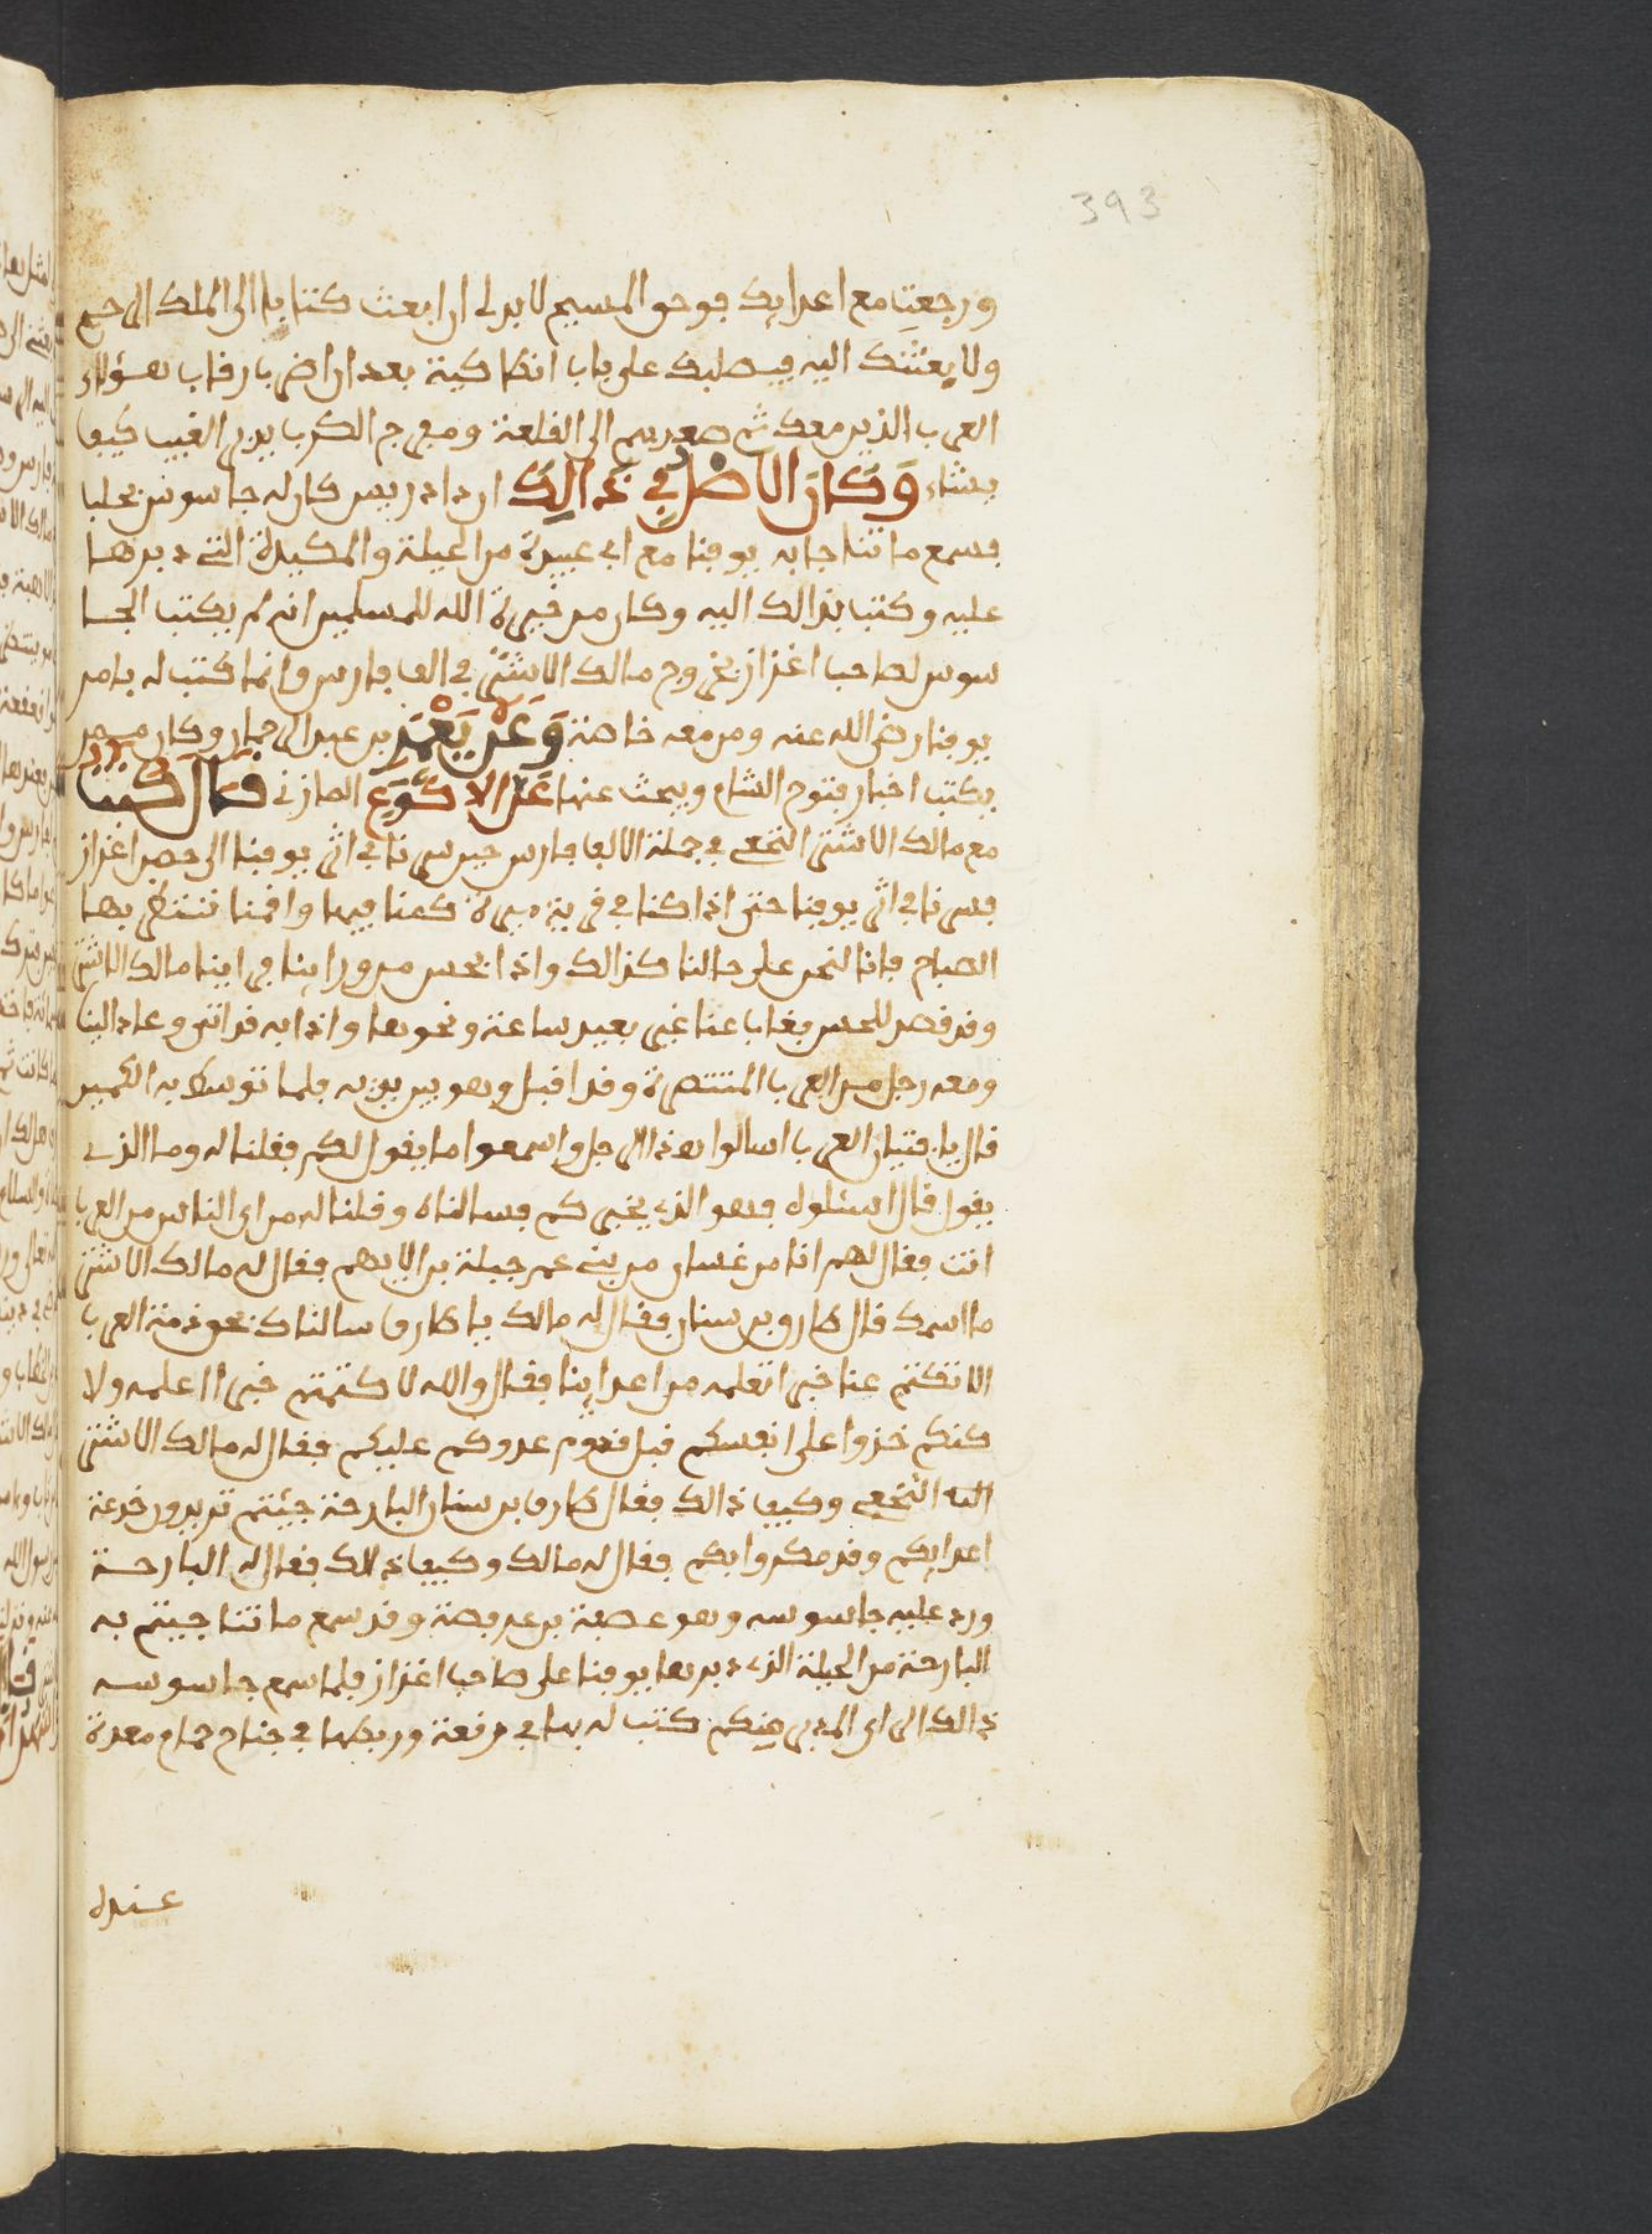 393
ورجعت مع اعدايك فوحق المسيح لا بد لي ان ابعث كتابا الى الملك الرحيم
ولا بعثنك اليه فيصلبك على باب انطاكية بعد ان اضرب رقاب هؤلاء
العرب الذين معك ثم صعد بهم الى القلعة ومفرج الكرب يدبر الغيب كيف
يشاء وكان الاصل في ذالك ان دادريس كان له جاسوس بحلب
فسمع ما تناجا به يوقنا مع ابي عبيدة من الحيلة والمكيدة التي دبرها
عليه وكتب بذالك اليه وكان من خيرة الله للمسلمين انه لم يكتب الجا
سوس لصاحب اعزاز بخروج مالك الاشتر في الف فارس وانما كتب له بامر
يوقنا رضي الله عنه ومن معه خاصة وعن يعمر بن عبد الرحمان وكان ممن
يكتب اخبار فتوح الشام ويبحث عنها عن الاكوع المازني قال كنت
مع مالك الاشتر النخعي في جملة الالف فارس حين سرنا في اثر يوقنا الى حصن اعزاز
فسرنا في اثر يوقنا حتى اذا كنا في قرية ميرة كمنا فيها واقمنا ننتظر بها
الصباح فانا لنحن على حالنا كذالك واذا بحس من وراينا فراينا مالك الاشتر
وقد قصد للحس فغاب عنا غير بعيد ساعة ونحوها واذا به قد اتى وعاد الينا
ومعه رجل من العرب المتنصرة وقد اقبل وهو بين يديه فلما توسط به الكمين
قال يا فتيان العرب اسالوا هذا الرجل واسمعوا ما يقول لكم فقلنا له وما الذي
يقول قال اسئلوه فهو الذي يخبركم فسالناه وقلنا له من اي الناس من العرب
انت فقال لهم انا من غسان من بني عم جبلة بن الايهم فقال له مالك الاشتر
ما اسمك قال طارق بن سنان فقال له مالك يا طارق سالناك بحق ذمة العرب
الا تكتم عنا خبرا تعلمه من اعداينا فقال والله لا كتمتم خبرا اعلمه ولا
كنكم خذوا على انفسكم قبل قدوم عدوكم عليكم فقال له مالك الاشتر
النخعي وكيف ذالك فقال طارق بن سنان البارحة جيئتم تريدون خدعة
اعدايكم وقد مكروا بكم فقال له مالك وكيف ذلك فقال له البارحة
ورد عليه جاسوسه وهو عصمة بن عرفجة وقد سمع ما تناجيتم به
البارحة من الحيلة الذي دبرها يوقنا على صاحب اعزاز فلما سمع جاسوسه
ذالك الراي المدبر منكم كتب له بها في رقعة وربطها في جناح حمام معدة
عنده